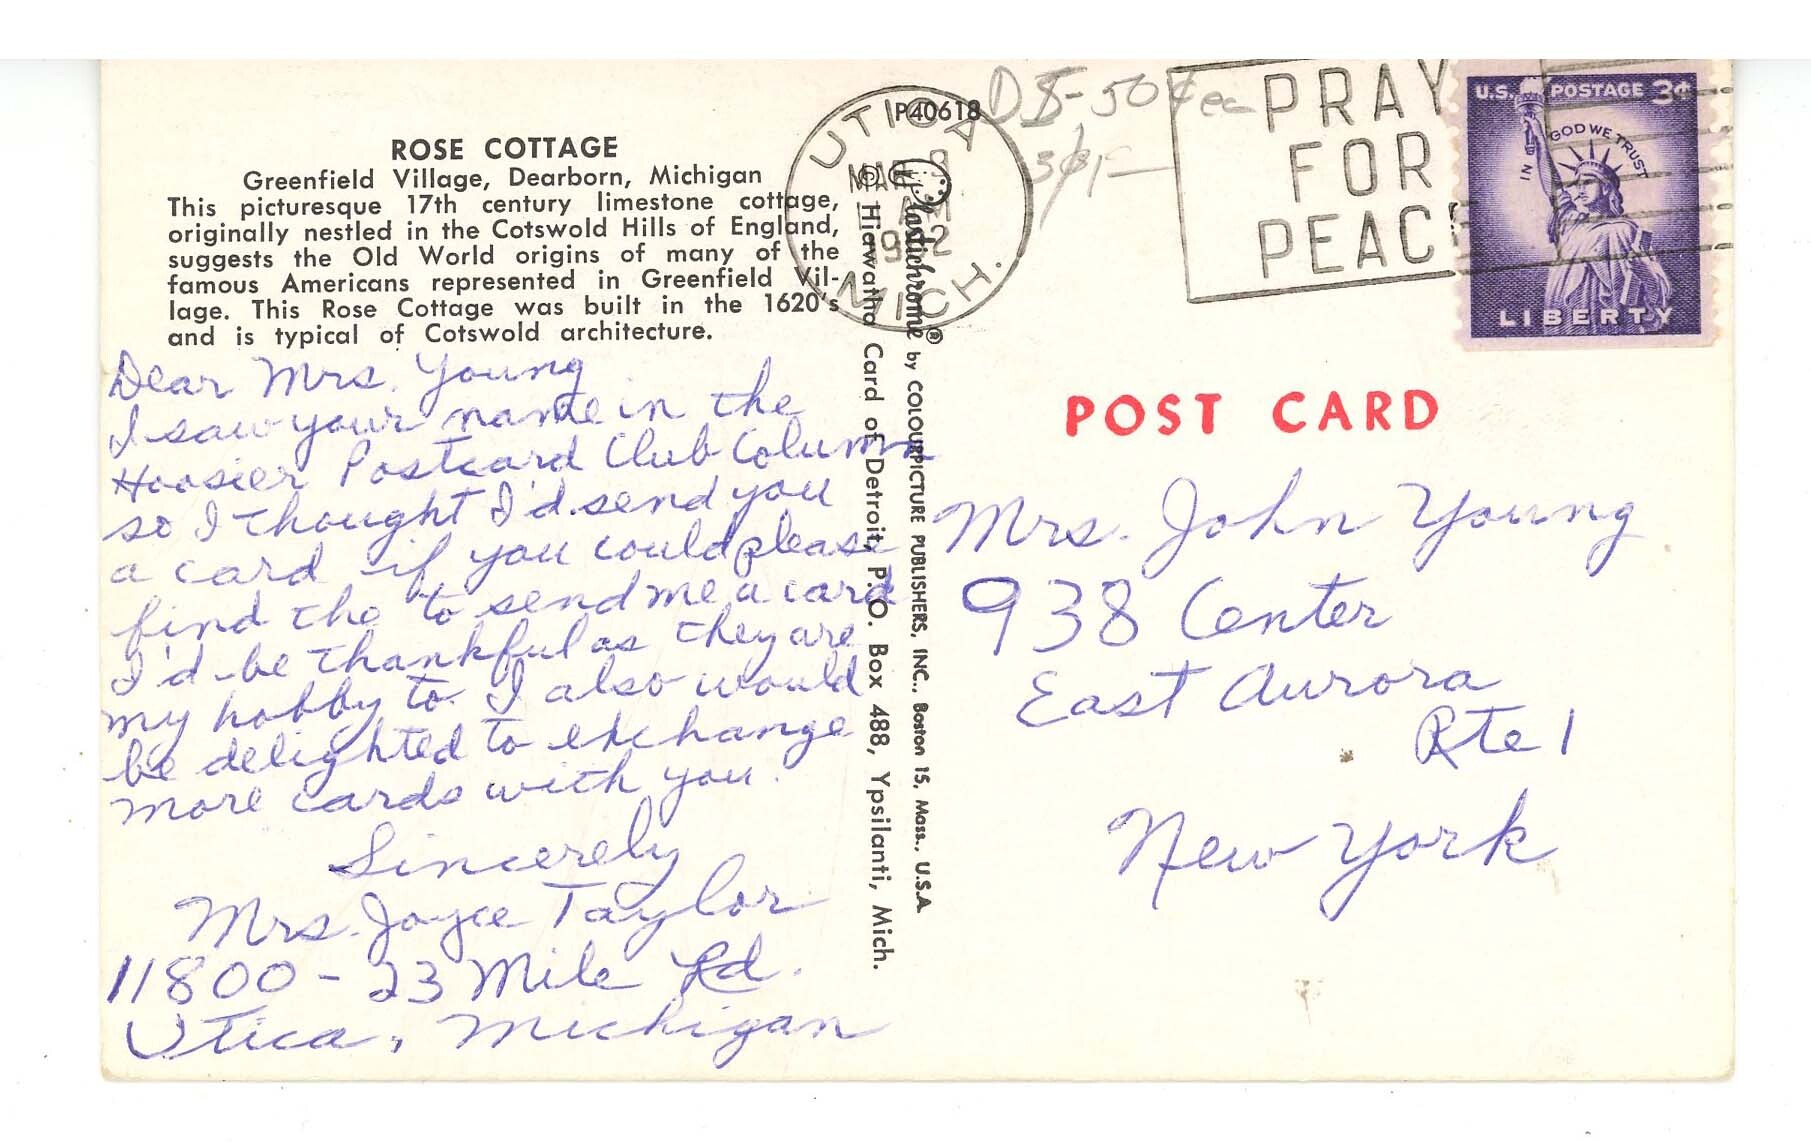 ROSE COTTAGE
Greenfield Village, Dearborn, Michigan
This picturesque 17th century limestone cottage,
originally nestled in the Cotswold Hills of England,
suggests the Old World origins of many of the
famous Americans represented in Greenfield Vil-
lage. This Rose Cottage was built in the 1620's
and is typical of Cotswold architecture.
Dear Mrs. Young
I saw your name in the
Hoosier Postcard Club Column
so I thought I'd send you
a card if you could please
find the to send me a card
I'd be thankful as they are
my hobby to. I also would
be delighted to exchange
more cards with you.
Sincerely
Mrs. Joyce Taylor
11800 - 23 Mile Rd.
Utica, Michigan
P40618
UTICA
MICH.
© Hiawatha Card of Detroit, P.O. Box 488, Ypsilanti, Mich.
Plastichrome® by COLOURPICTURE PUBLISHERS, INC., Boston 15, Mass., U.S.A.
50¢ ea
3/1-
PRAY
FOR
PEAC
U.S. POSTAGE 3¢
IN GOD WE TRUST
LIBERTY
POST CARD
Mrs. John Young
938 Center
East Aurora
Rte 1
New York